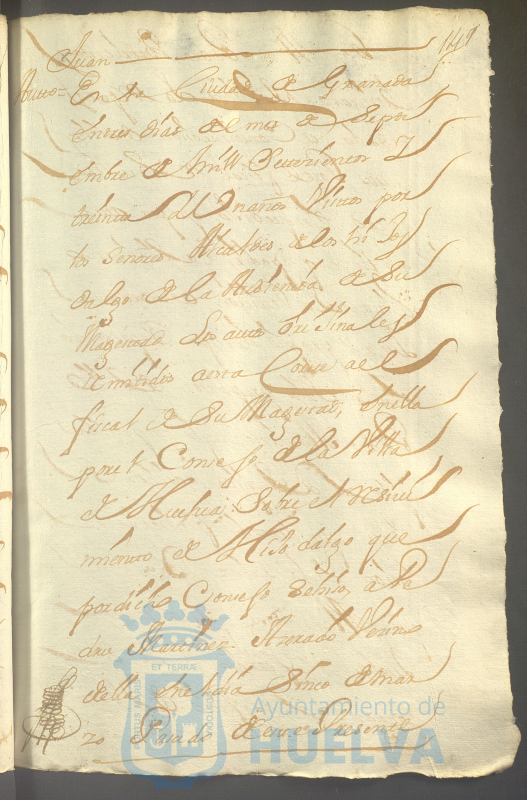 147
Juan
Auto= En la Ciudad de Granada
en tres dias del mes de Sep
tiembre de mill Settecientos y
treinta y un años Vistos por
los Senores Alcaldes de los hijos
dalgo de la Audiencia de Su
Magestad Los autos originales
Remitidos a esta Corte a el
fiscal de Su Magestad, en ella
por el Conсejo de la Villa
de Huelva, Sobre el resivi
miento de Hijo dalgo que
por dicho Consejo se hiso, a
Martinez Verino
della en el dia Sinco de mar
zo Pasado de este Presente
ET TERRÆ
Ayuntamiento de
HUELVA